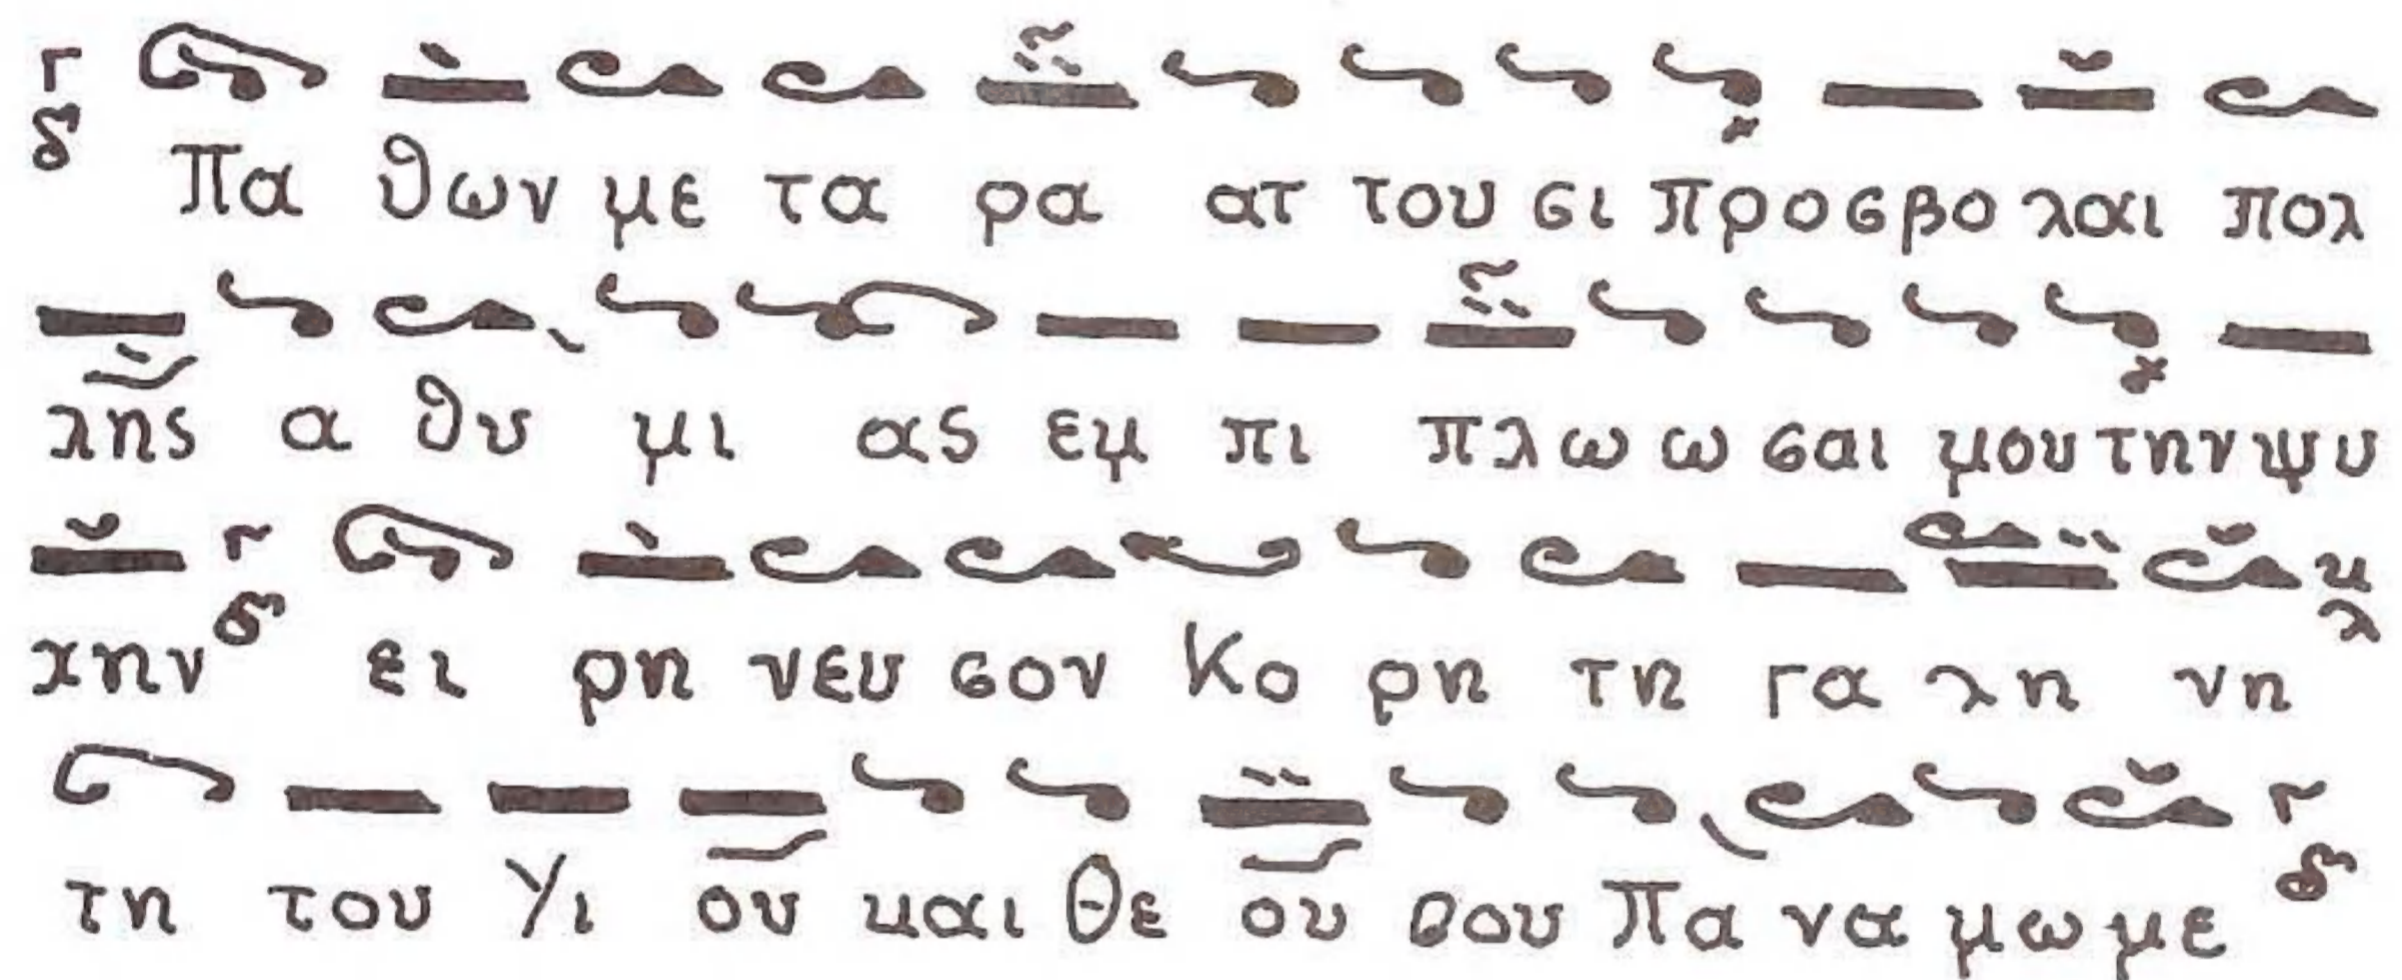 Πα θων με τα ρα ατ του σι προσ βο λαι πολ
λης α θυ μι ας εμ πι πλω ω σαι μου την ψυ
χην ει ρη νευ σον Κο ρη τη γα λη νη
τη του Υι ου και Θε ου σου Πα να μω με